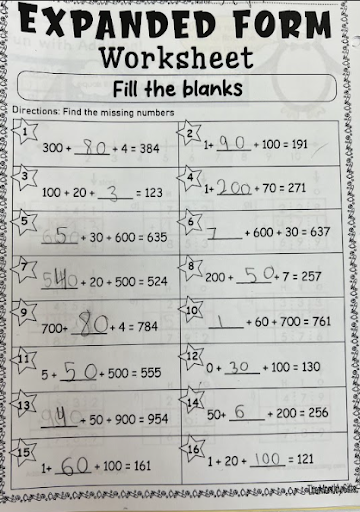 EXPANDED FORM
Worksheet
Fill the blanks
Directions: Find the missing numbers
1
300 + 80 + 4 = 384
2
1+ 90 + 100 = 191
3
100 + 20 + 3 = 123
4
1+ 200 + 70 = 271
5
5 + 30 + 600 = 635
6
7 + 600 + 30 = 637
7
4 + 20 + 500 = 524
8
200 + 50 + 7 = 257
9
700+ 80 + 4 = 784
10
1 + 60 + 700 = 761
11
5 + 50 + 500 = 555
12
0 + 30 + 100 = 130
13
4 + 50 + 900 = 954
14
50+ 6 + 200 = 256
15
1+ 60 + 100 = 161
16
1 + 20 + 100 = 121